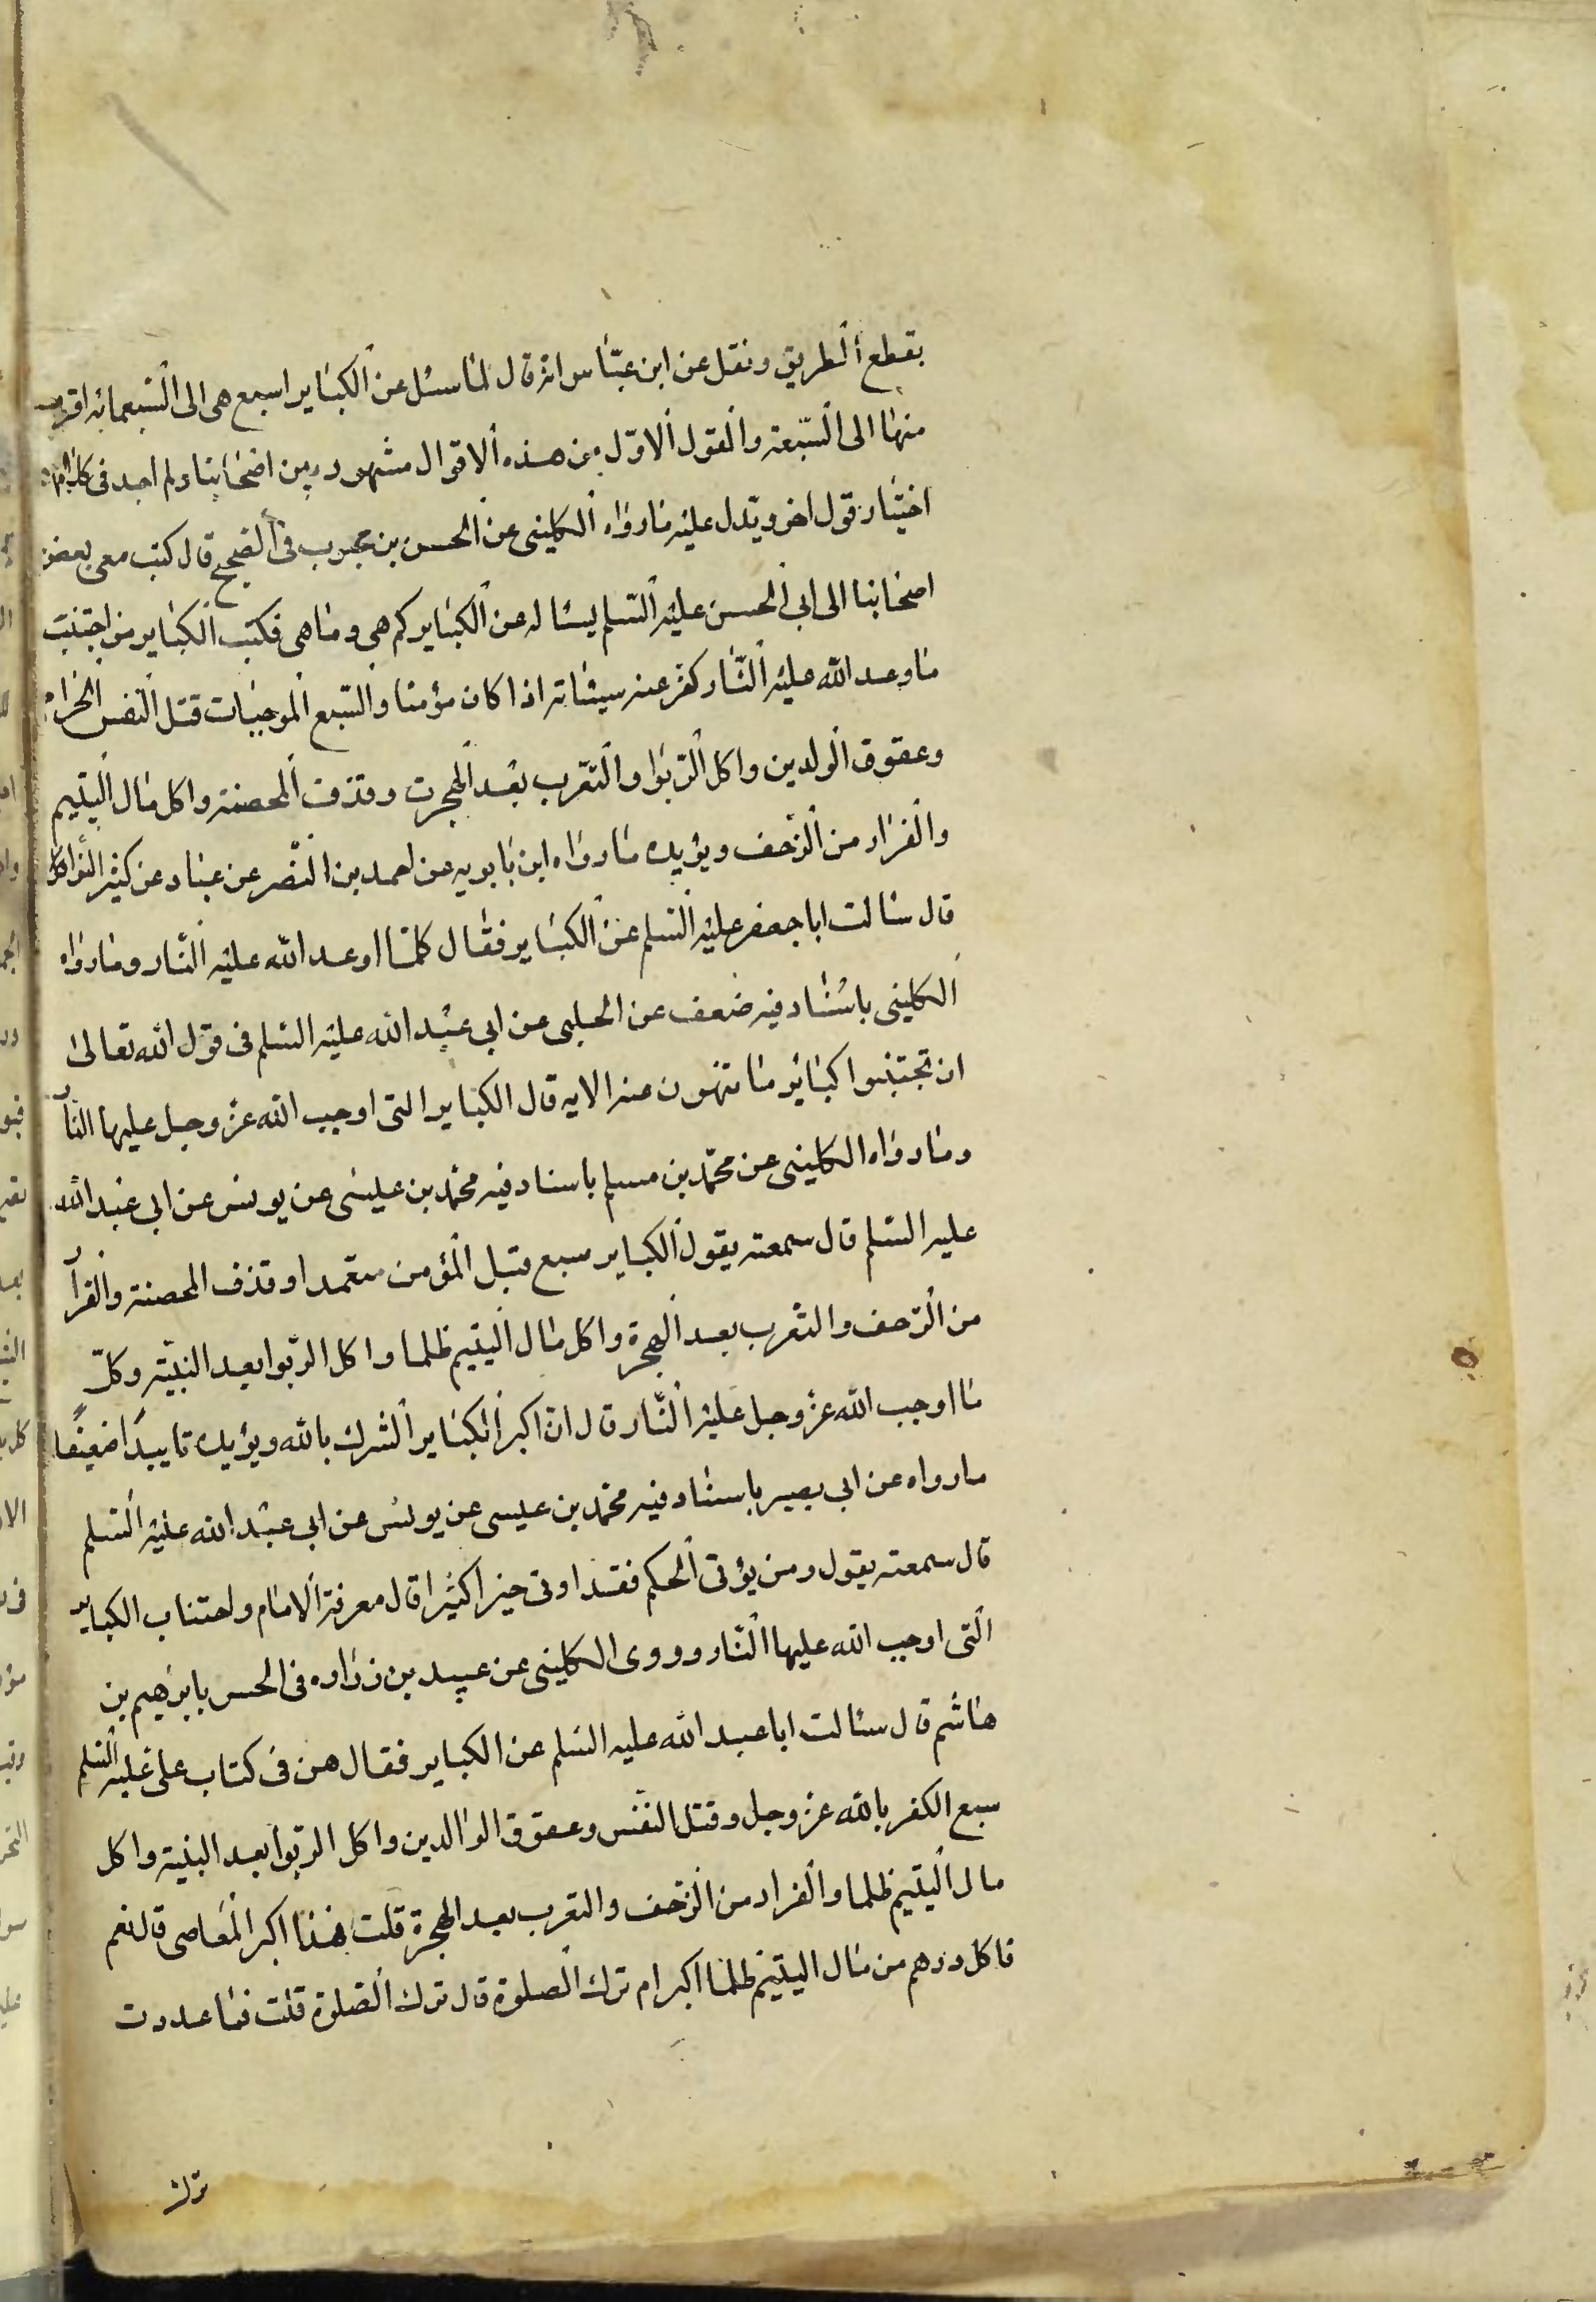 بقطع الطريق ونقل عن ابن عبّاس انه قال لمّا سئل عن الكبائر اسبع هى الى السّبعمائه اقرب
منها الى السّبعة والقول الاوّل من هذه الاقوال مشهور بين اصحابنا ولم اجد فى كلامهم
اختيار قول اخر ويدل عليه ما رواه الكلينى عن الحسن بن محبوب فى الصّحيح قال كتب معى بعض
اصحابنا الى ابى الحسن عليه السّلم يسئاله عن الكبائر كم هى وما هى فكتب الكبائر من اجتنب
ما وعد الله عليه النّار كفر عنه سيئاته اذا كان مؤمنا والسّبع الموجبات قتل النّفس الحرام
وعقوق الولدين واكل الرّبوا والتّعرب بعد الهجرت وقذف المحصنة واكل مال اليتيم
والفرار من الزّحف ويؤيده ما رواه ابن بابويه عن احمد بن النّضر عن عباد عن كثير النّوا
قال سئالت ابا جعفر عليه السّلم عن الكبائر فقال كلّما اوعد الله عليه النّار وما رواه
الكلينى باسناد فيه ضعف عن الحلبى عن ابى عبد الله عليه السّلم فى قول الله تعالى
ان تجتنبوا كبائر ما تنهون عنه الايه قال الكباير التى اوجب الله عزّ وجل عليها النّار
وما رواه الكلينى عن محمّد بن مسلم باسناد فيه محمّد بن عليسى عن يونس عن ابى عبد الله
عليه السّلم قال سمعته يقول الكباير سبع قتل المؤمن متعمدا وقذف المحصنة والفرار
من الزحف والتعرب بعد الهجرة واكل مال اليتيم ظلما واكل الربوا بعد البيّنة وكلّ
ما اوجب الله عزّ وجل عليه النّار قال انّ اكبر الكبائر الشرك بالله ويؤيده تاييدًا ضعيفًا
ما رواه عن ابى بصير باسناد فيه محمّد بن عيسى عن يونس عن ابى عبد الله عليه السّلم
قال سمعته يقول ومن يؤتى الحكم فقد اوتى خيرا كثيرا قال معرفة الامام واجتناب الكباير
الّتى اوجب الله عليها النّار وروى الكلينى عن عبيد بن زراره فى الحسن بابرهيم بن
هاشم قال سئالت ابا عبد الله عليه السّلم عن الكباير فقال هن فى كتاب على عليه السّلم
سبع الكفر بالله عزّ وجل وقتل النّفس وعقوق الوالدين واكل الربوا بعد البيّنة واكل
مال اليتيم ظلما والفرار من الزّحف والتعرب بعد الهجرة قلت هذا اكبر المعاصى قال نعم
فاكل درهم من مال اليتيم ظلما اكبر ام ترك الصلوة قال ترك الصّلوة قلت فما عددت
ترك